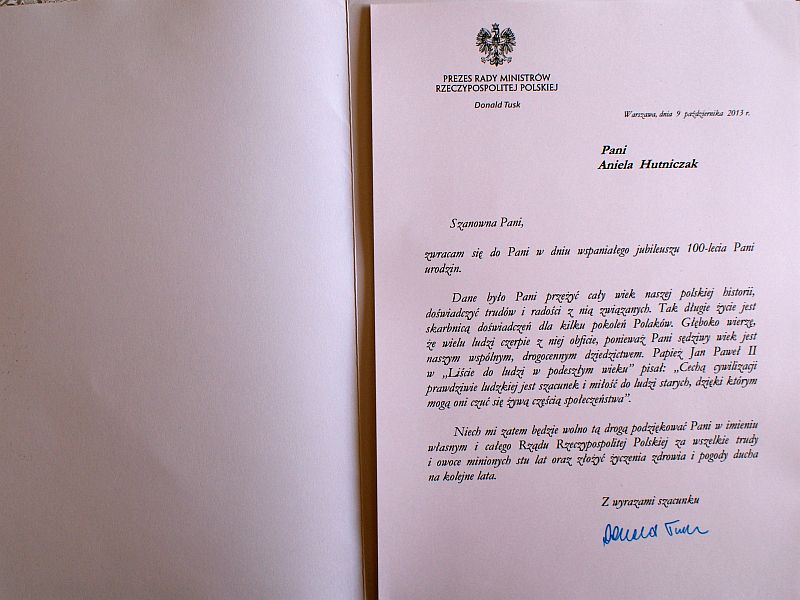 PREZES RADY MINISTRÓW
RZECZYPOSPOLITEJ POLSKIEJ
Donald Tusk
Warszawa, dnia 9 października 2013 r.
Pani
Aniela Hutniczak
Szanowna Pani,
zwracam się do Pani w dniu wspaniałego jubileuszu 100-lecia Pani
urodzin.
Dane było Pani przeżyć cały wiek naszej polskiej historii,
doświadczyć trudów i radości z nią związanych. Tak długie życie jest
skarbnicą doświadczeń dla kilku pokoleń Polaków. Głęboko wierzę,
że wielu ludzi czerpie z niej obficie, ponieważ Pani sędziwy wiek jest
naszym wspólnym, drogocennym dziedzictwem. Papież Jan Paweł II
w „Liście do ludzi w podeszłym wieku” pisał: „Cechą cywilizacji
prawdziwie ludzkiej jest szacunek i miłość do ludzi starych, dzięki którym
mogą oni czuć się żywą częścią społeczeństwa”.
Niech mi zatem będzie wolno tą drogą podziękować Pani w imieniu
własnym i całego Rządu Rzeczypospolitej Polskiej za wszelkie trudy
i owoce minionych stu lat oraz złożyć życzenia zdrowia i pogody ducha
na kolejne lata.
Z wyrazami szacunku
Donald Tusk